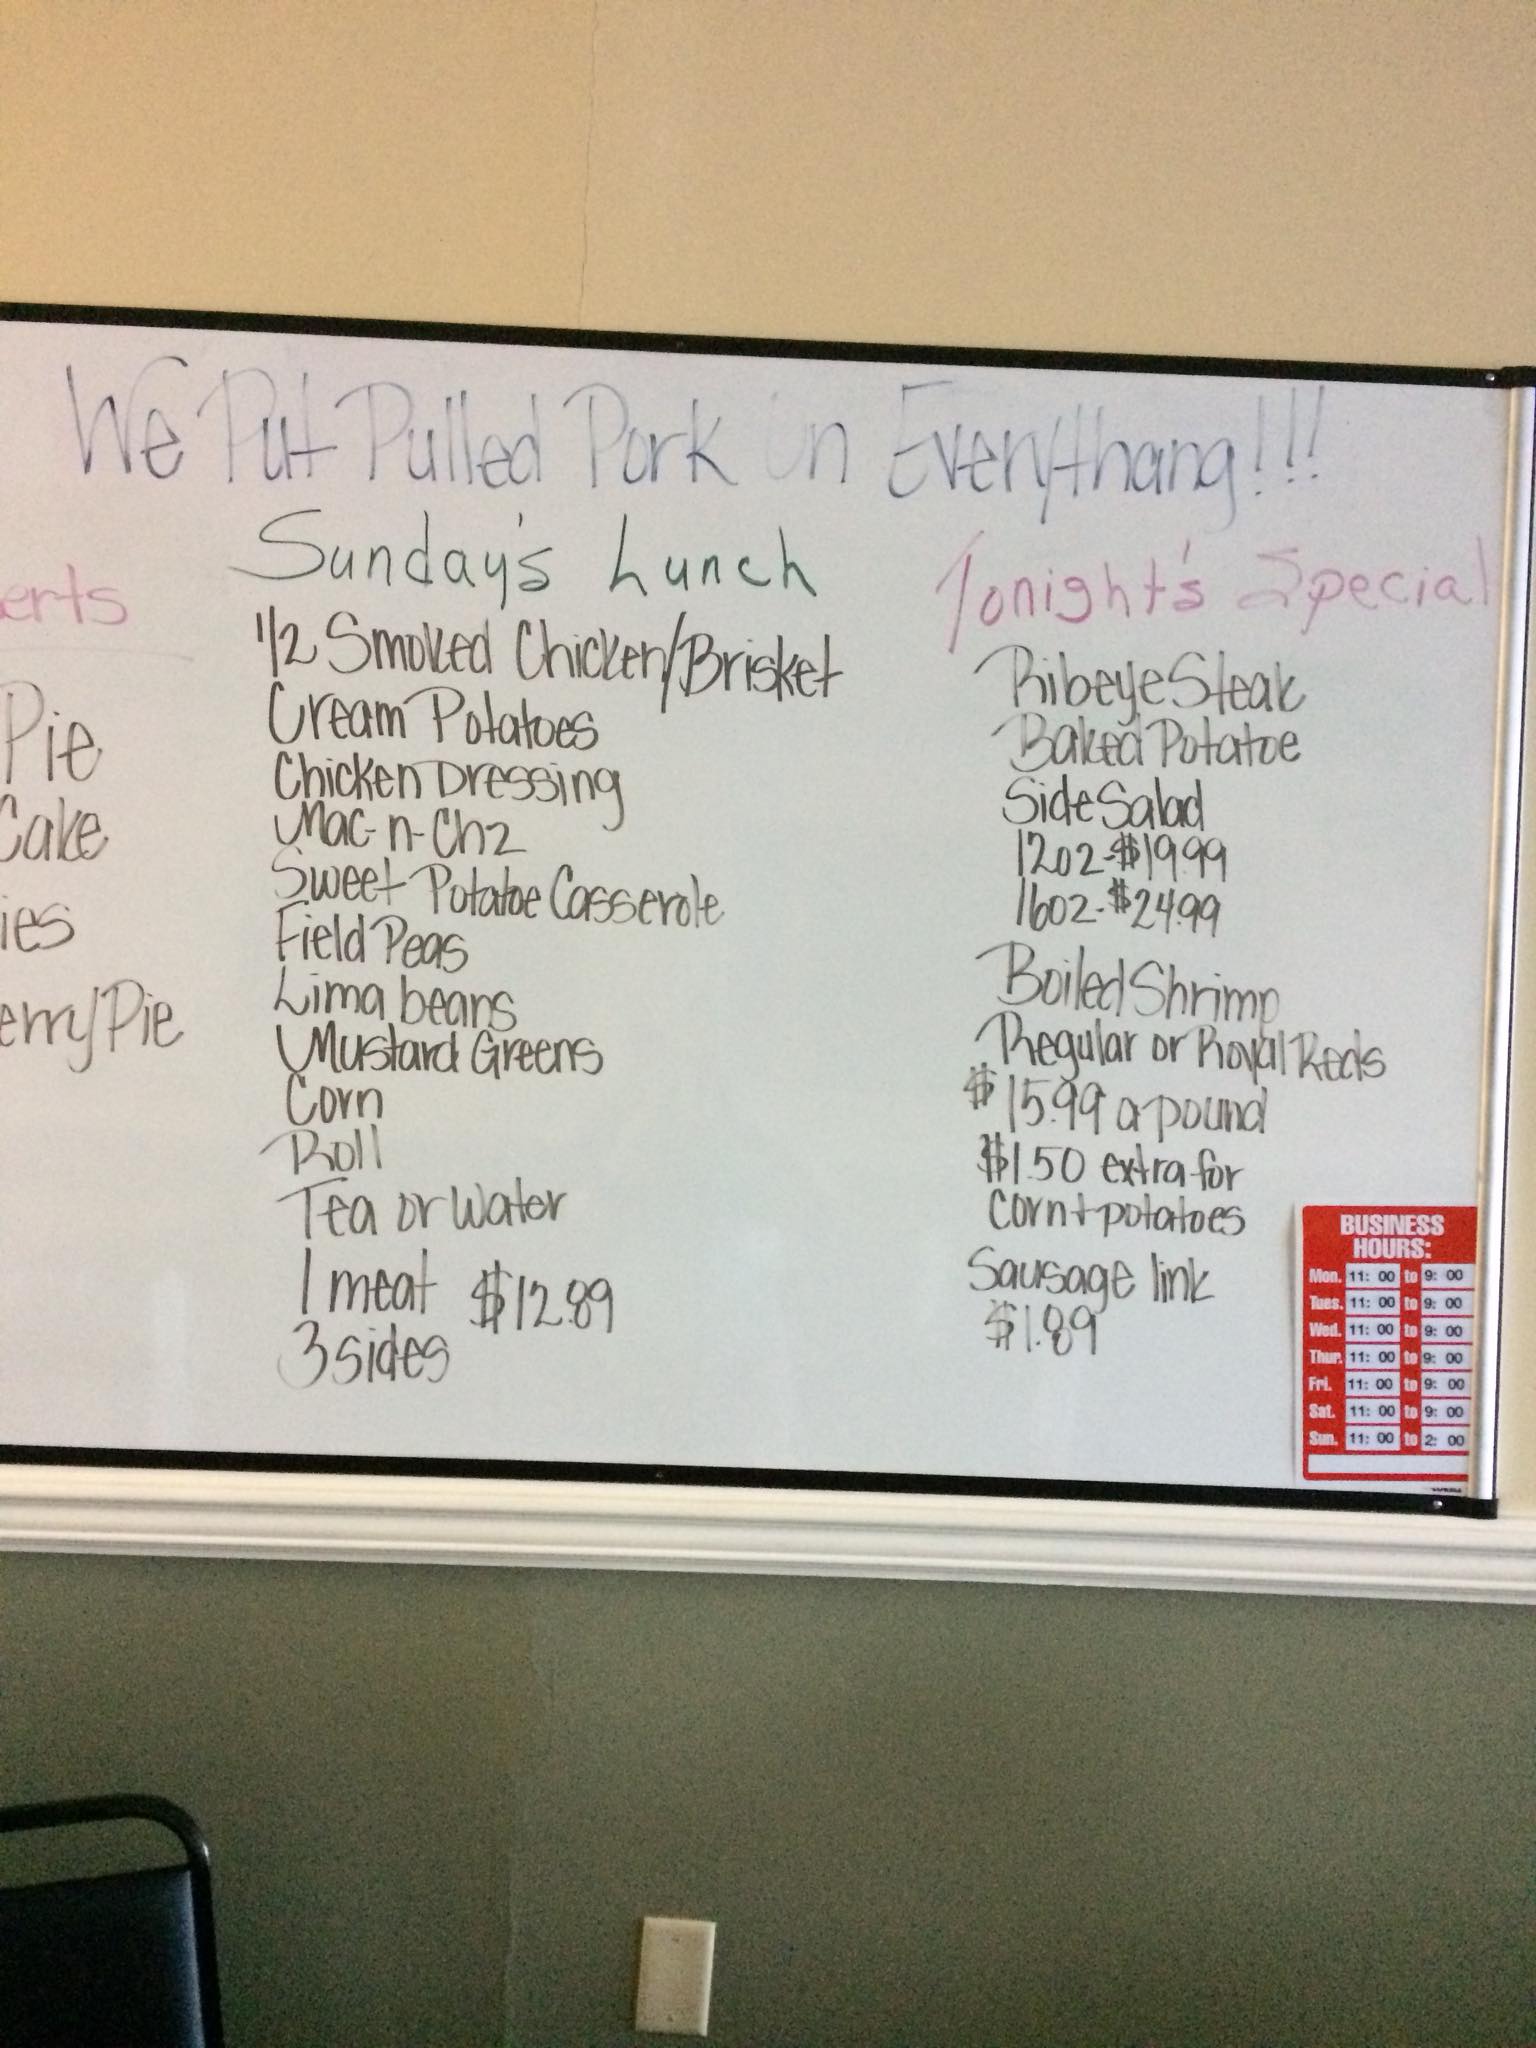 We Put Pulled Pork On Everythang!!!
erts
Pie
Cake
ies
erry/Pie
Sunday's Lunch
1/2 Smoked Chicken/Brisket
Cream Potatoes
Chicken Dressing
Mac-n-Chz
Sweet Potatoe Casserole
Field Peas
Lima beans
Mustard Greens
Corn
Roll
Tea or Water
1 meat $12.89
3 sides
Tonight's Special
Ribeye Steak
Baked Potatoe
Side Salad
12oz-$19.99
16oz-$24.99
Boiled Shrimp
Regular or Royal Reds
$15.99 a pound
$1.50 extra for
corn + potatoes
Sausage link
$1.89
BUSINESS
HOURS:
Mon. 11:00 to 9:00
Tues. 11:00 to 9:00
Wed. 11:00 to 9:00
Thur. 11:00 to 9:00
Fri. 11:00 to 9:00
Sat. 11:00 to 9:00
Sun. 11:00 to 2:00